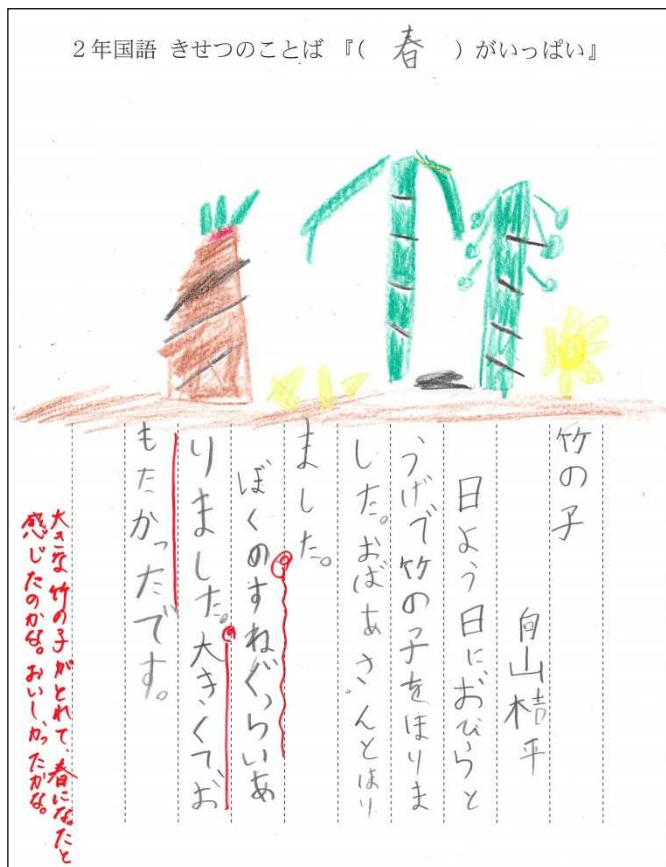 2年国語 きせつのことば 『( 春 ) がいっぱい』
竹の子
向山桔平
日よう日におびらと
うげで竹の子をほりま
した。おばあさんとほり
ました。
ぼくのすねぐらいあ
りました。大きくて、お
もたかったです。
大きな竹の子がとれて、春になったと
感じたのかな。おいしかったかな。